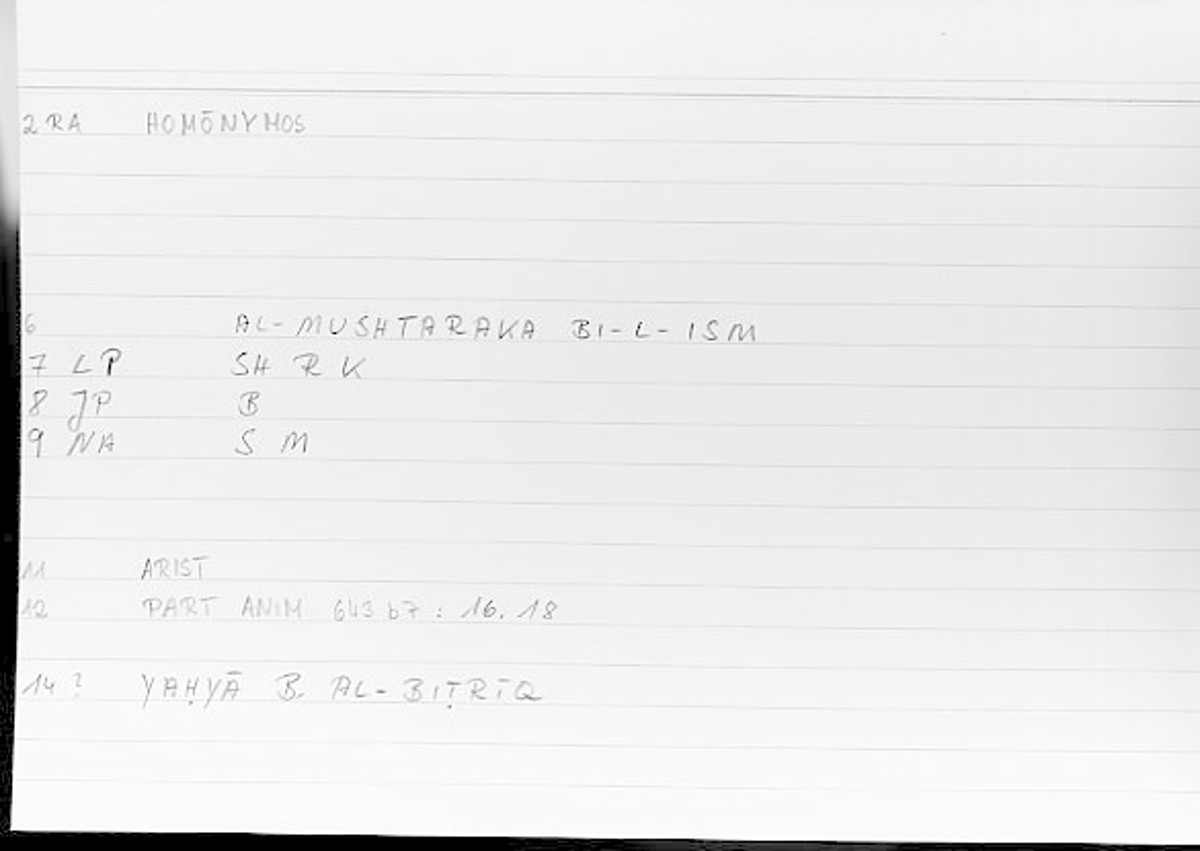 2 RA HOMŌNYMOS
6 AL-MUSHTARAKA BI-L-ISM
7 LP SH R K
8 JP B
9 NA S M
11 ARIST
12 PART ANIM 643 b7 : 16.18
14 ? YAḤYĀ B. AL-BIṬRĪQ